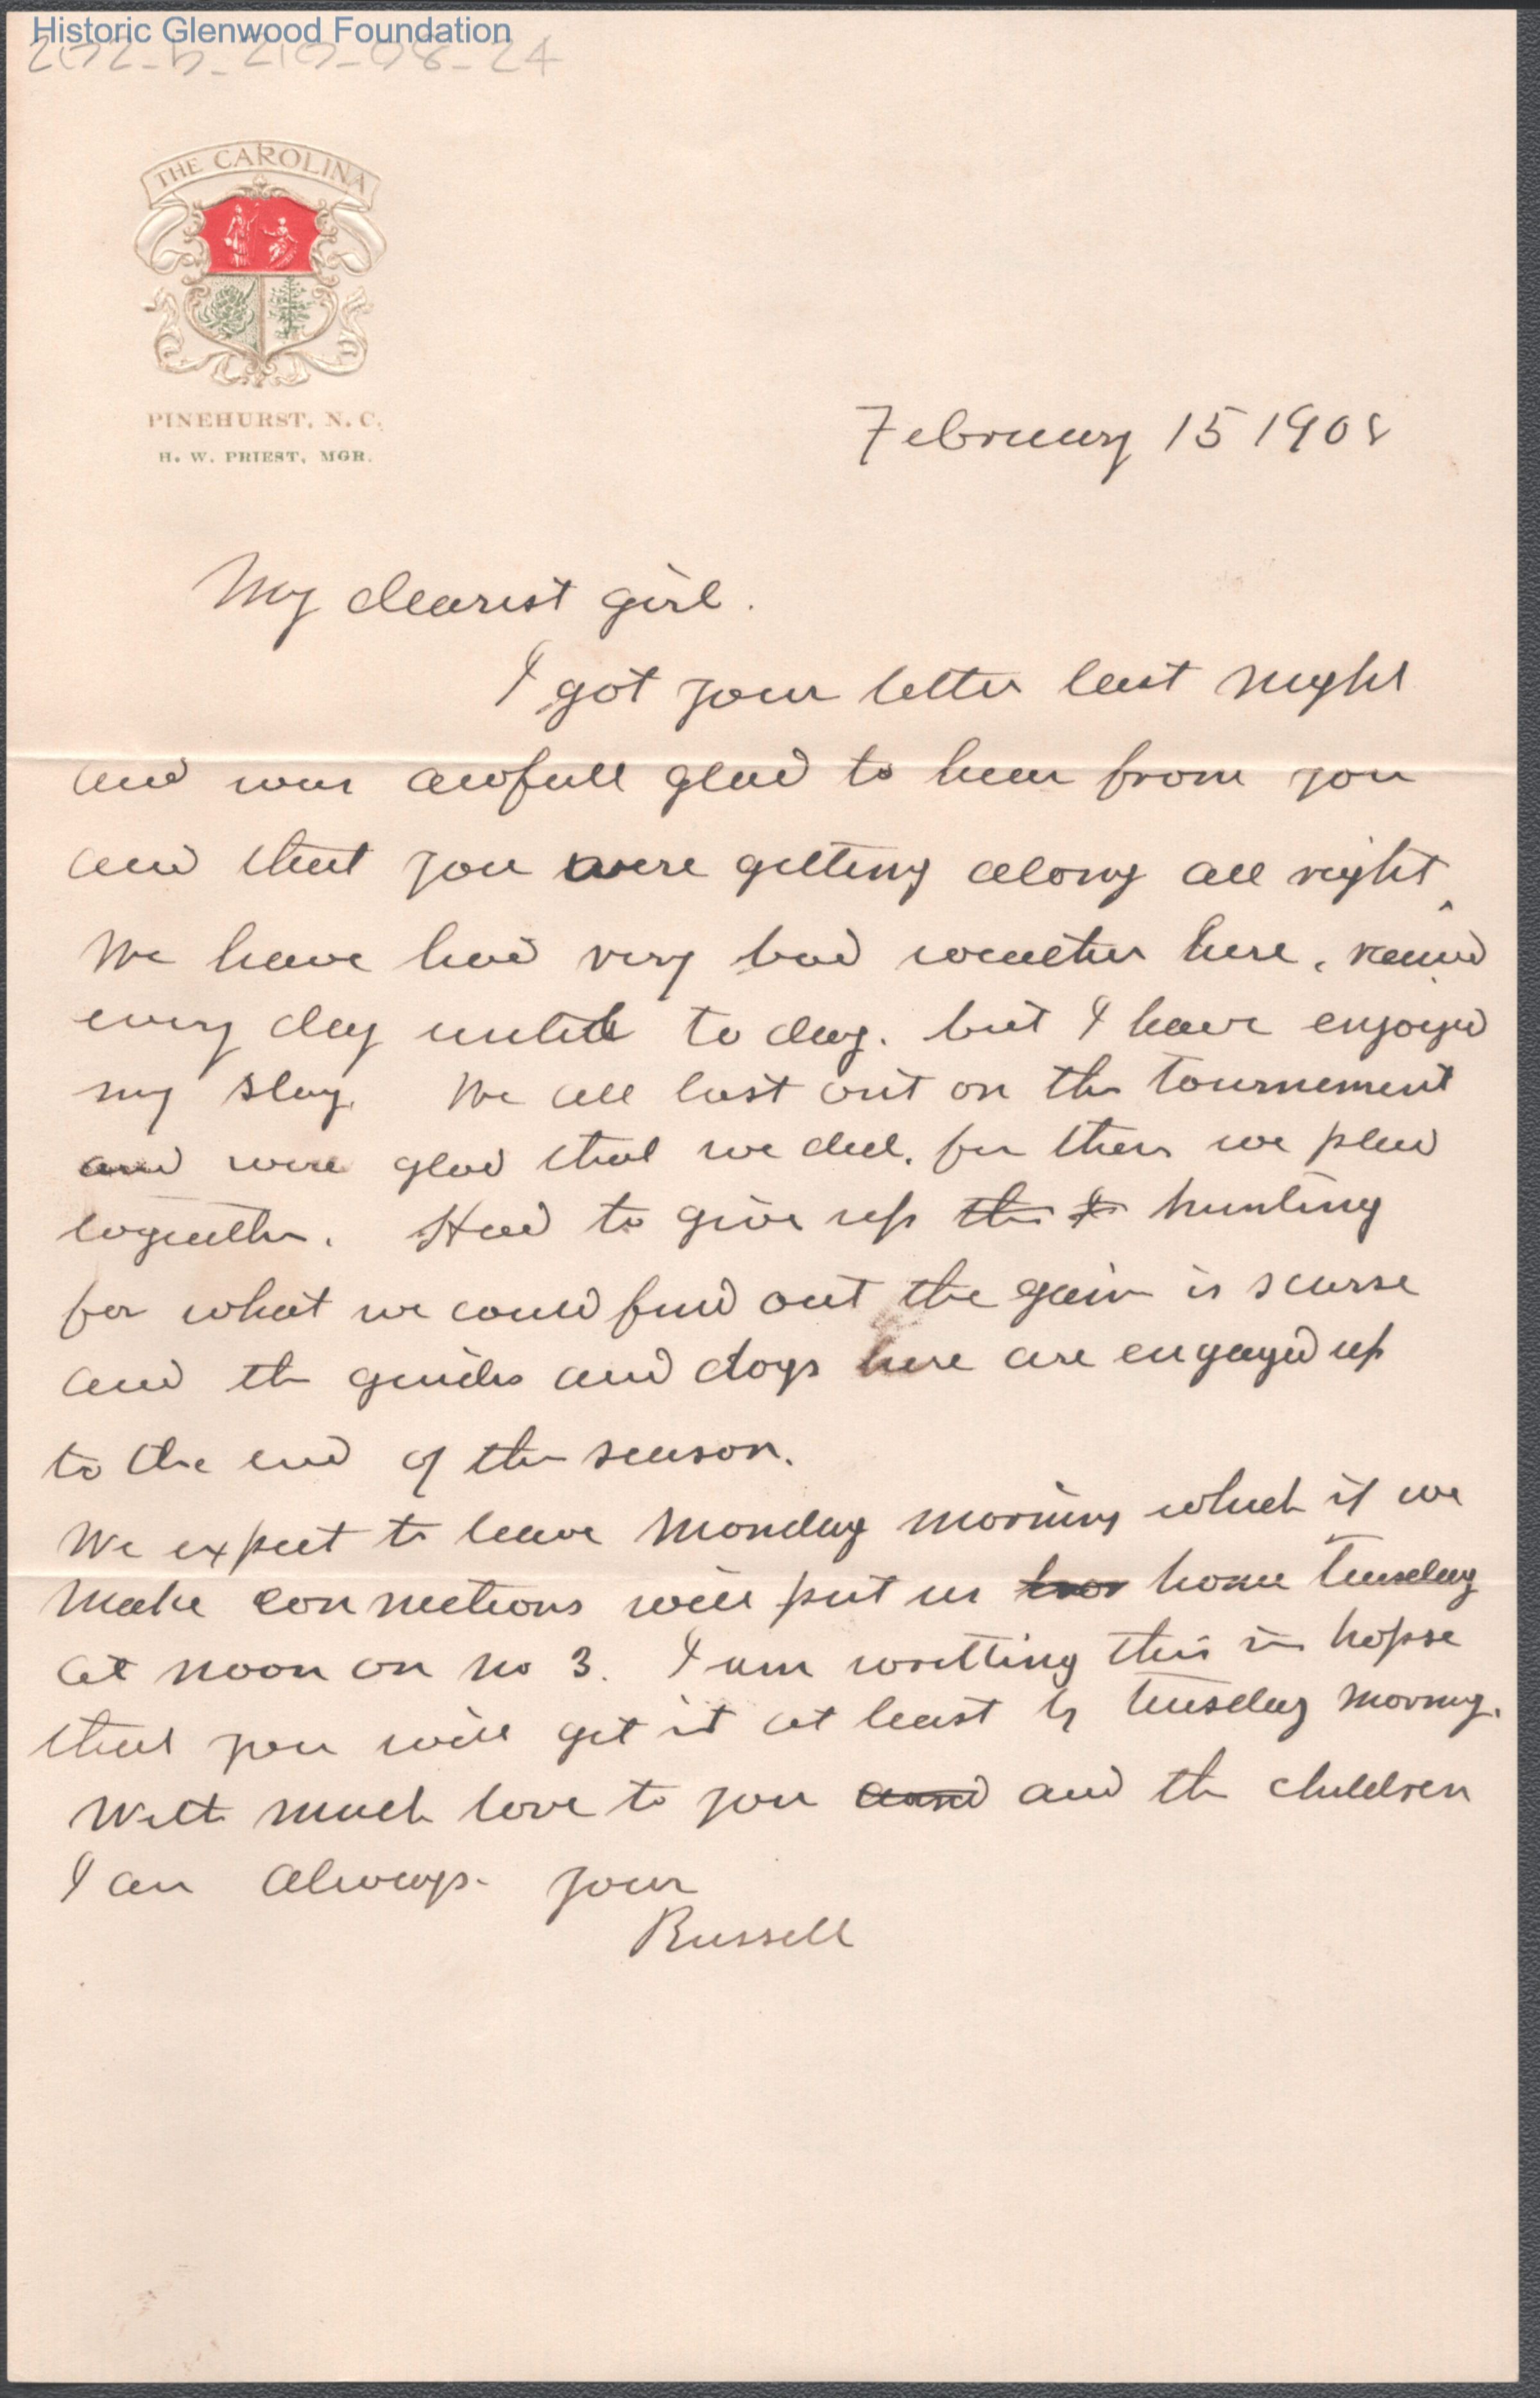 Historic Glenwood Foundation
202-b-210-08-24
THE CAROLINA
PINEHURST, N. C.
H. W. PRIEST, MGR.
February 15 1908
My dearest girl.
I got your letter last night
and was awfull glad to hear from you
and that you were getting along all right.
We have had very bad weather here, raind
every day untill to day. but I have enjoyed
my stay. We all lost out on the tournement
and were glad that we did. for then we plaed
togeather. Had to give up the hunting
for what we could find out the gaim is scarse
and the guides and dogs here are engaged up
to the end of the season.
We expect to leave Monday morning which if we
make connections will put us home Tuesday
at noon on no 3. I am writting this in hopse
that you will get it at least by Tuesday morning.
With much love to you and and the children
I am always. your
Russell